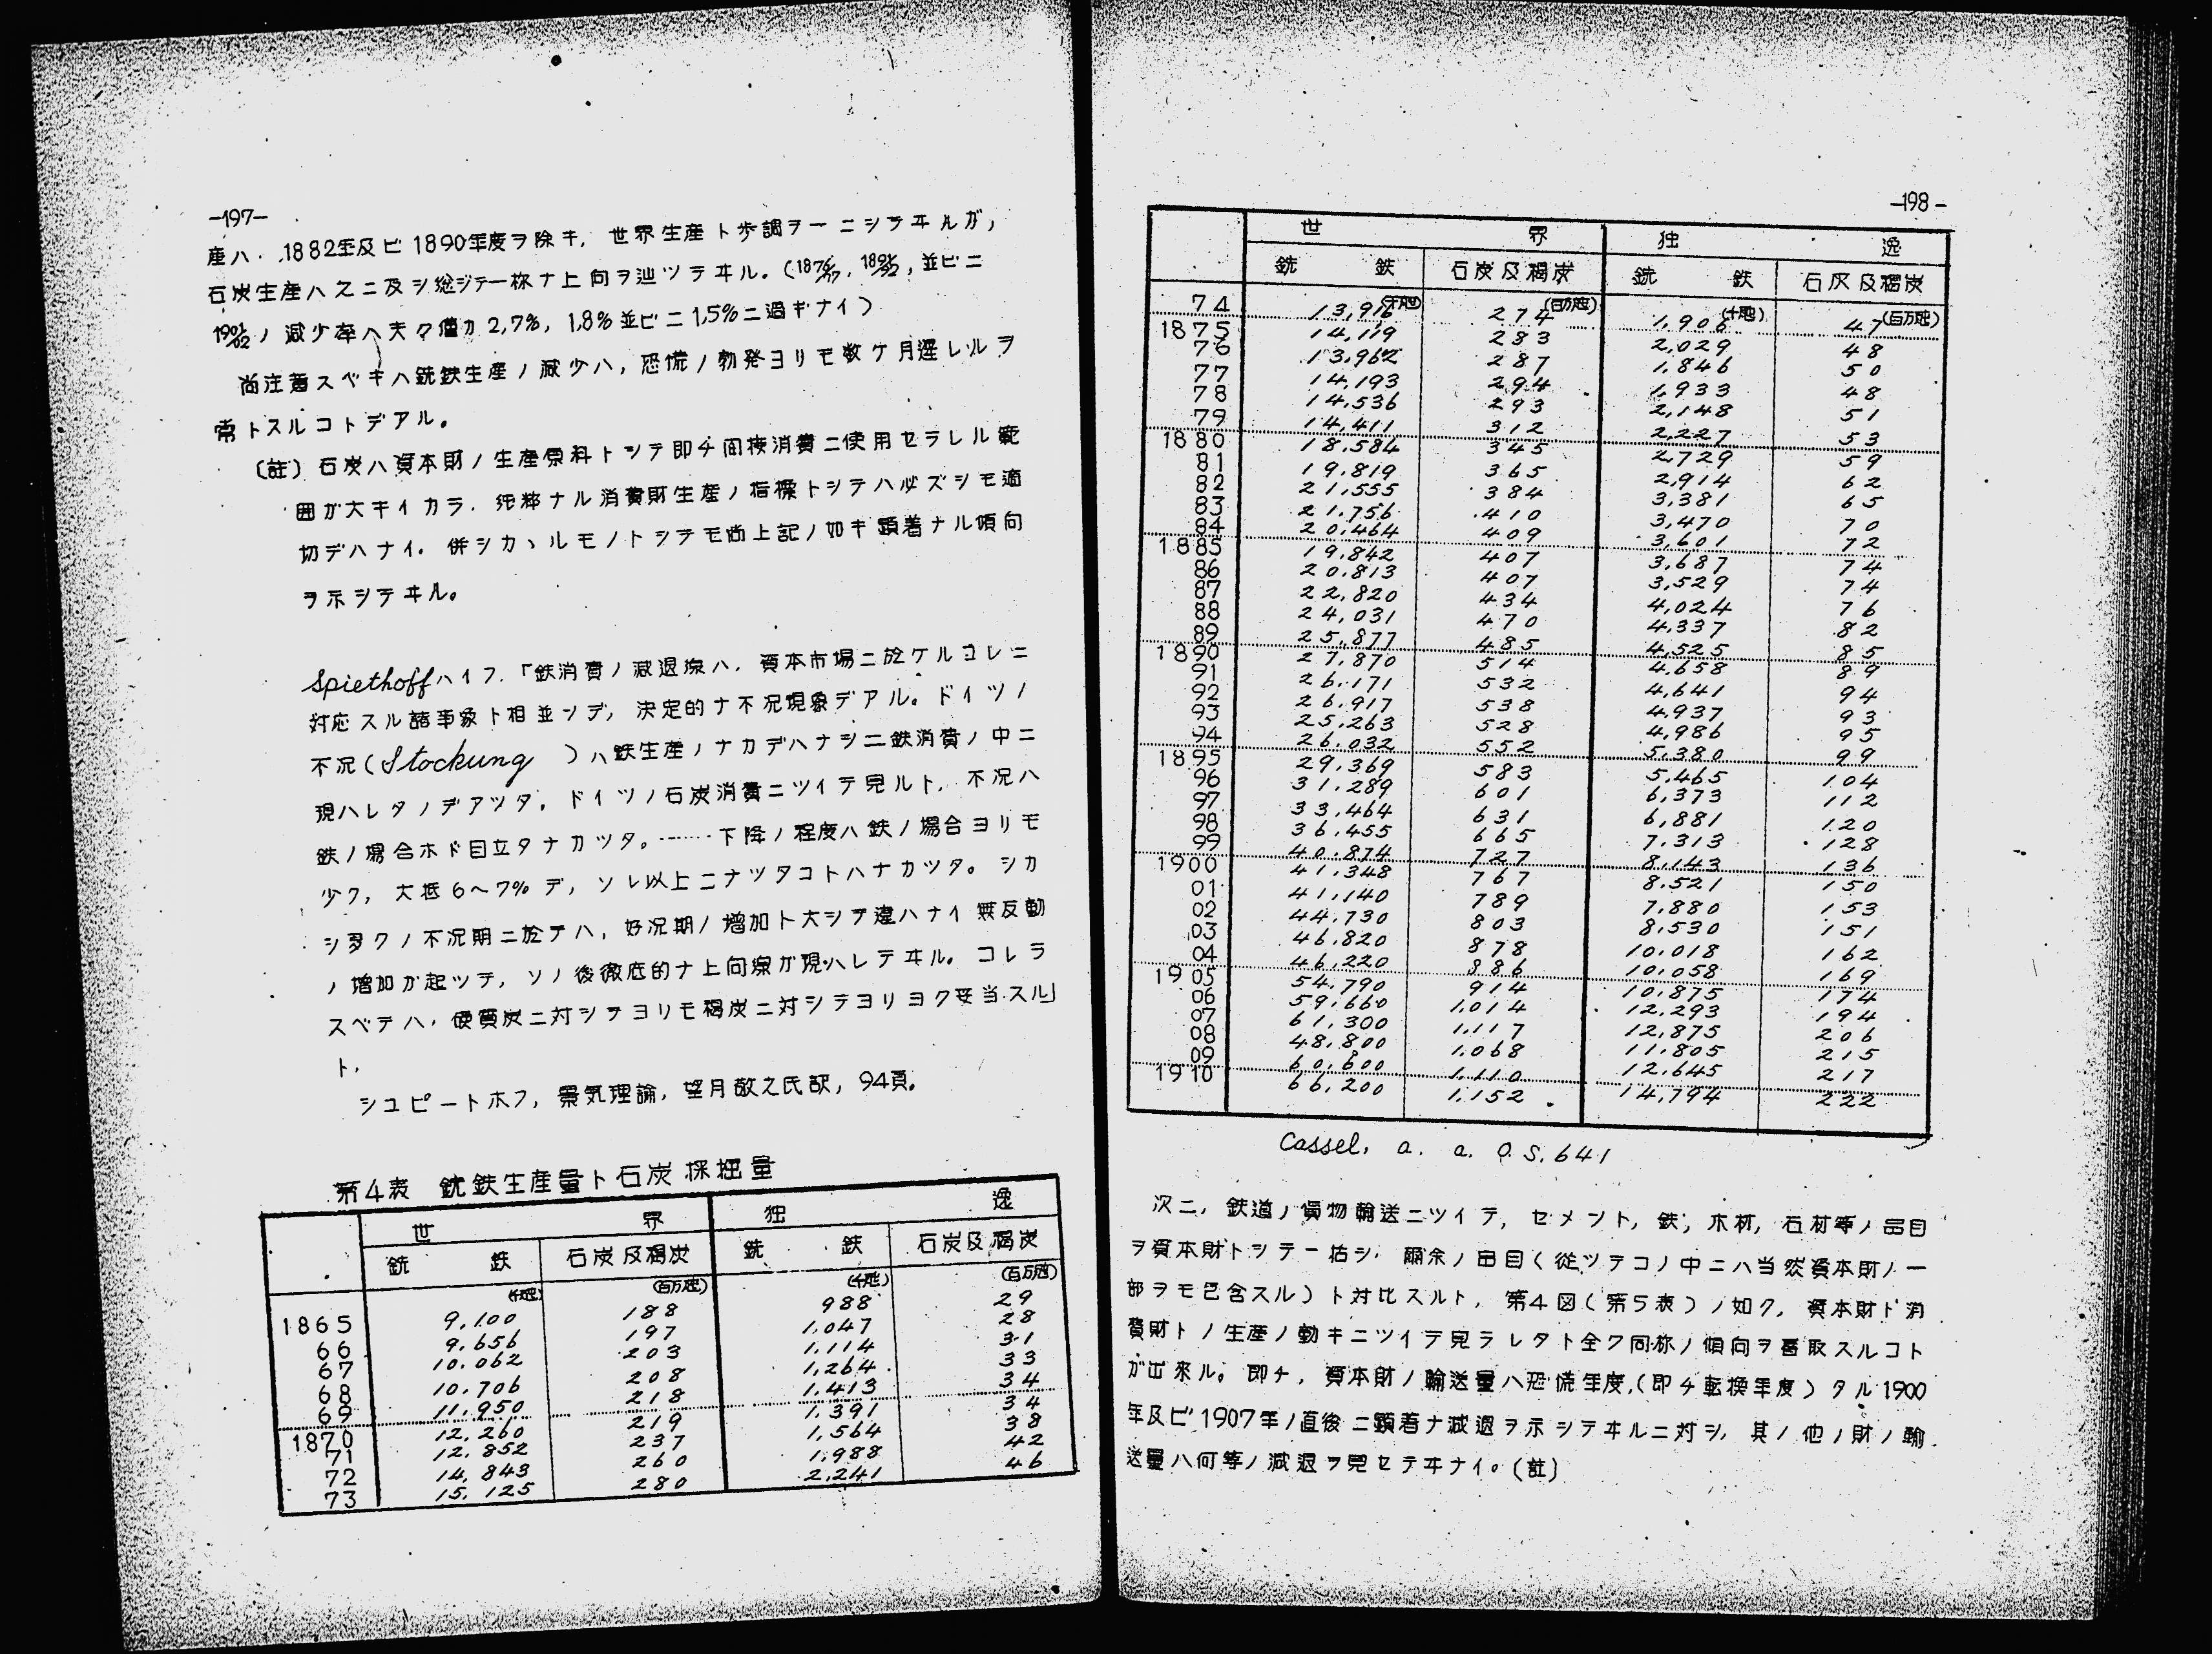 -197-
産ハ、1882年及ビ1890年度ヲ除キ、世界生産ト歩調ヲ一ニシテヰルガ,
石炭生産ハ之ニ反シ総ジテ一様ナ上向ヲ辿ツテヰル。(1876/77, 1891/92, 並ビニ
1901/02ノ減少率ハ夫々僅カ2,7%, 1,8%並ビニ1,5%ニ過ギナイ)
尚注意スベキハ銑鉄生産ノ減少ハ, 恐慌ノ勃発ヨリモ数ケ月遅レルヲ
常トスルコトデアル。
(註) 石炭ハ資本財ノ生産原料トシテ即チ間接消費ニ使用セラレル範
囲ガ大キイカラ、純粋ナル消費財生産ノ指標トシテハ必ズシモ適
切デハナイ。併シカヽルモノトシテモ尚上記ノ如キ顕着ナル傾向
ヲ示シテヰル。
Spiethoffハイフ.「鉄消費ノ減退線ハ, 資本市場ニ於ケルコレニ
対応スル諸事象ト相並ンデ, 決定的ナ不況現象デアル。ドイツノ
不況(Stockung )ハ鉄生産ノナカデハナシニ鉄消費ノ中ニ
現ハレタノデアツタ。ドイツノ石炭消費ニツイテ見ルト, 不況ハ
鉄ノ場合ホド目立タナカツタ。……下降ノ程度ハ鉄ノ場合ヨリモ
少ク, 大抵6～7%デ, ソレ以上ニナツタコトハナカツタ。シカ
シ多クノ不況期ニ於テハ, 好況期ノ増加ト大シテ違ハナイ無反動
ノ増加ガ起ツテ, ソノ後徹底的ナ上向線ガ現ハレテヰル。コレラ
スベテハ, 硬質炭ニ対シテヨリモ褐炭ニ対シテヨリヨク妥当スル」
ト,
シユピートホフ, 景気理論, 望月敬之氏訳, 94頁。
第4表 銑鉄生産量ト石炭採掘量
世界 独逸
銑鉄 石炭及褐炭 銑鉄 石炭及褐炭
(千瓲) (百万瓲) (千瓲) (百万瓲)
1865 9,100 188 988 29
66 9,656 197 1,047 28
67 10,062 203 1,114 31
68 10,706 208 1,264 33
69 11,950 218 1,413 34
1870 12,260 219 1,391 34
71 12,852 237 1,564 38
72 14,843 260 1,988 42
73 15,125 280 2,241 46
-198-
世界 独逸
銑鉄 石炭及褐炭 銑鉄 石炭及褐炭
(千瓲) (百万瓲) (千瓲) (百万瓲)
74 13,916 274 1,906 47
1875 14,119 283 2,029 48
76 13,962 287 1,846 50
77 14,193 294 1,933 48
78 14,536 293 2,148 51
79 14,411 312 2,227 53
1880 18,584 345 2,729 59
81 19,819 365 2,914 62
82 21,555 384 3,381 65
83 21,756 410 3,470 70
84 20,464 409 3,601 72
1885 19,842 407 3,687 74
86 20,813 407 3,529 74
87 22,820 434 4,024 76
88 24,031 470 4,337 82
89 25,877 485 4,525 85
1890 27,870 514 4,658 89
91 26,171 532 4,641 94
92 26,917 538 4,937 93
93 25,263 528 4,986 95
94 26,032 552 5,380 99
1895 29,369 583 5,465 104
96 31,289 601 6,373 112
97 33,464 631 6,881 120
98 36,455 665 7,313 128
99 40,874 727 8,143 136
1900 41,348 767 8,521 150
01 41,140 789 7,880 153
02 44,730 803 8,530 151
03 46,820 878 10,018 162
04 46,220 886 10,058 169
1905 54,790 914 10,875 174
06 59,660 1,014 12,293 194
07 61,300 1,117 12,875 206
08 48,800 1,068 11,805 215
09 60,600 1,110 12,645 217
1910 66,200 1,152 14,794 222
Cassel, a. a. O. S. 641
次ニ, 鉄道ノ貨物輸送ニツイテ, セメント, 鉄, 木材, 石材等ノ品目
ヲ資本財トシテ一括シ, 爾余ノ品目(従ツテコノ中ニハ当然資本財ノ一
部ヲモ包含スル)ト対比スルト, 第4図(第5表)ノ如ク, 資本財ト消
費財トノ生産ノ動キニツイテ見ラレタト全ク同様ノ傾向ヲ看取スルコト
ガ出来ル。即チ, 資本財ノ輸送量ハ恐慌年度,(即チ転換年度)タル1900
年及ビ1907年ノ直後ニ顕着ナ減退ヲ示シテヰルニ対シ, 其ノ他ノ財ノ輸
送量ハ何等ノ減退ヲ見セテヰナイ。(註)